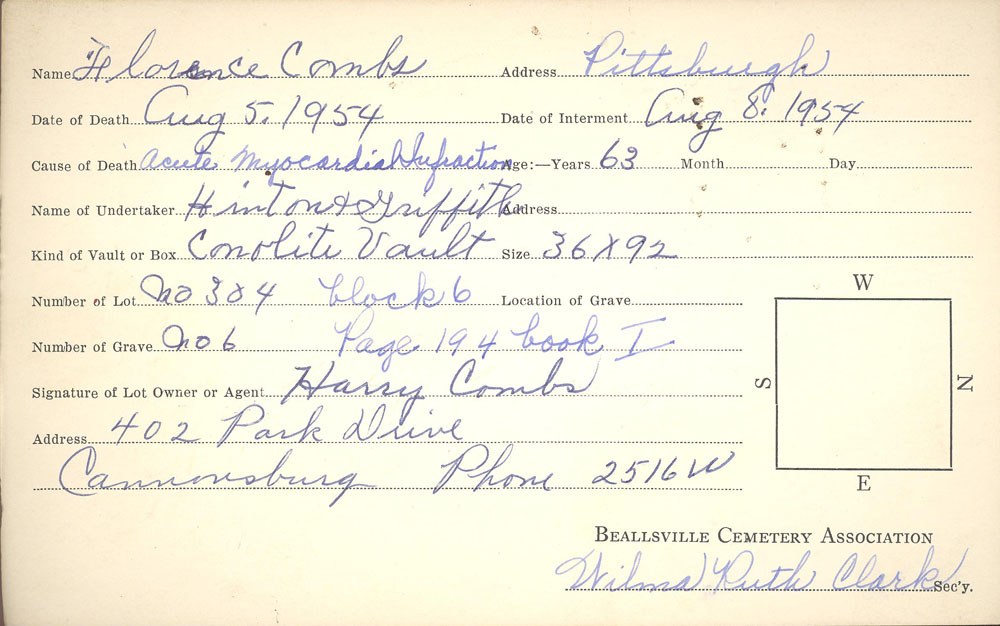 Name Florence Combs Address Pittsburgh
Date of Death Aug 5. 1954 Date of Interment Aug 8. 1954
Cause of Death Acute Myocardial Infraction Age:—Years 63 Month Day
Name of Undertaker Hinton & Griffith Address
Kind of Vault or Box Conolite Vault Size 36 X 92
Number of Lot No 304 block 6 Location of Grave
Number of Grave No 6 Page 194 book I
Signature of Lot Owner or Agent Harry Combs
Address 402 Park Drive
Cannonsburg Phone 2516 W
W
S N
E
Beallsville Cemetery Association
Wilma Ruth Clark Sec'y.